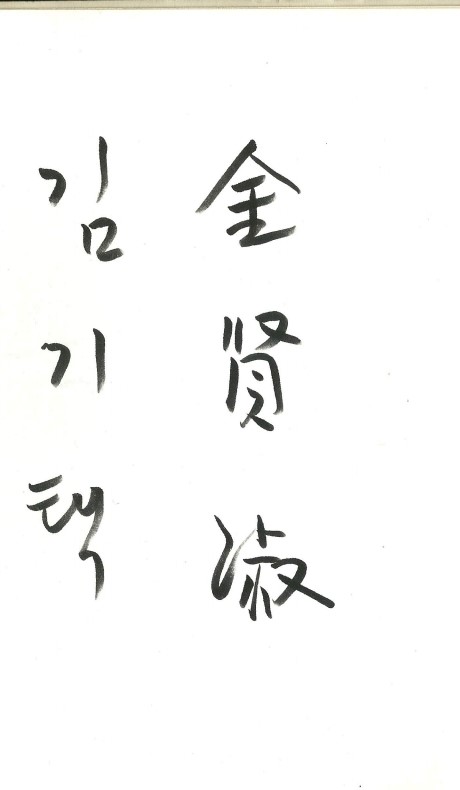 金贤淑
김기택